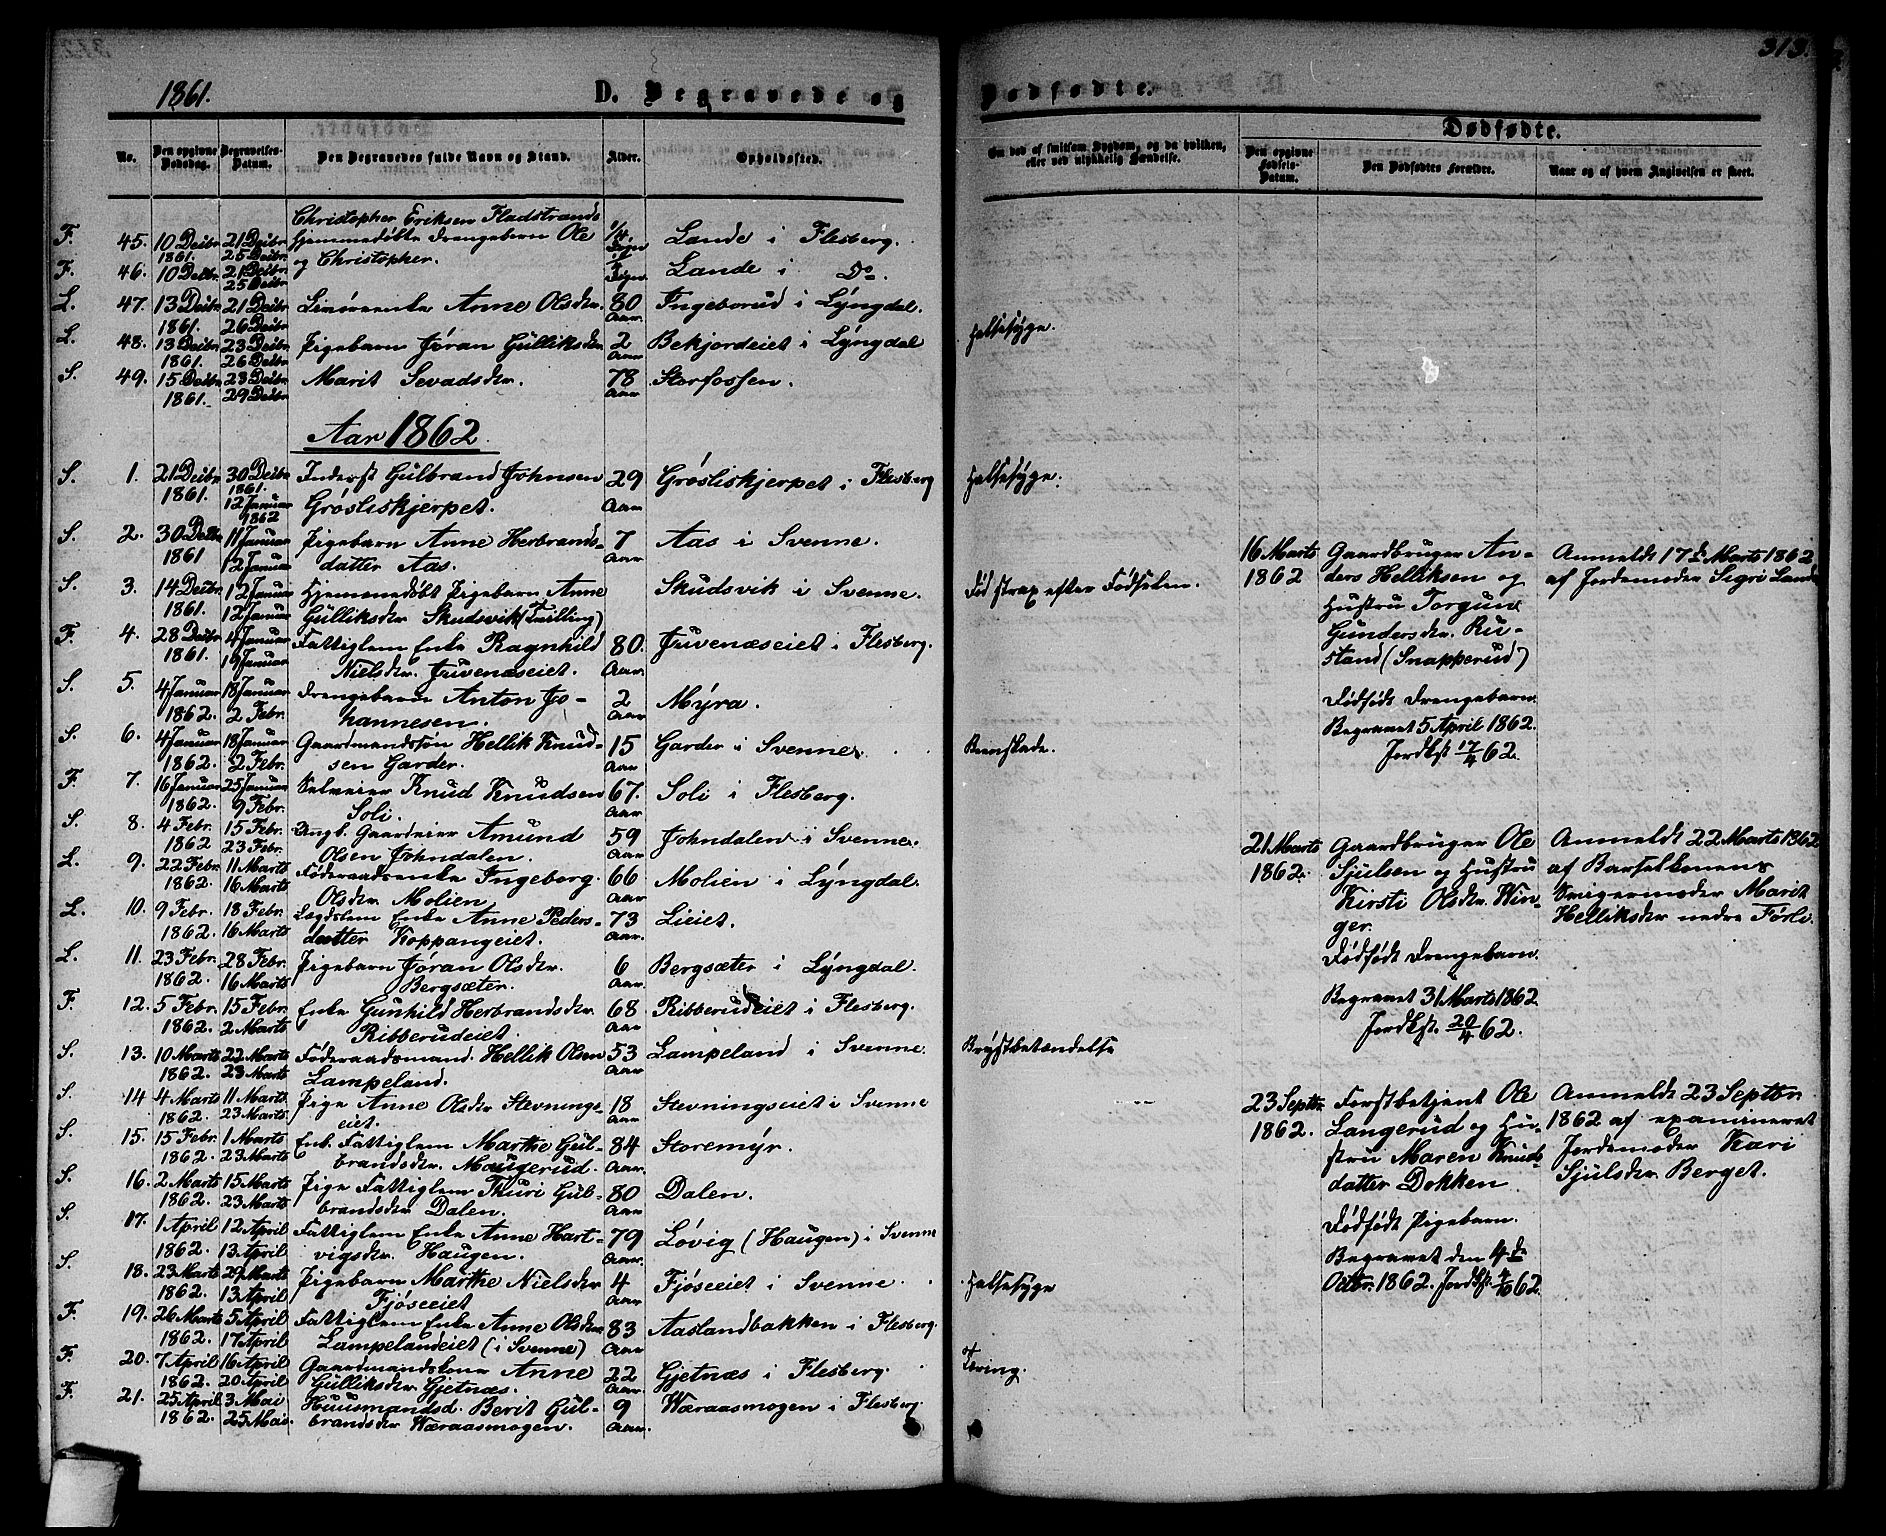 313.
1861. D. Begravede og Dødfødte.
No. Den opgivne Dødsdag. Begravelses-Datum. Den Begravedes fulde Navn og Stand. Alder. Opholdssted. Om død af smitsom Sygdom, og da hvilken, eller ved ulykkelig Hændelse.
Dødfødte.
Den opgivne Fødsels-Datum. Den Dødfødtes Forældre. Naar og af hvem Angivelsen er skeet.
Christopher Eriksen Fladstrands
F. 45. 10 Decbr. 21 Decbr. hjemmedøbte Drengebarn Ole 1/4 Lande i Flesberg.
1861. 25 Decbr. og Christopher.
F. 46. 10 Decbr. 21 Decbr. Lande i Do.
25 Decbr.
L. 47. 13 Decbr. 21 Decbr. Anne Olsdtr. 80 Ingeborud i Lÿngdal.
1861. 26 Decbr. Aar.
L. 48. 13 Decbr. 23 Decbr. Pigebarn Jøran Gulliksdtr. 2 Bekjordeiet i Lÿngdal Halsesyge.
1861. 26 Decbr. Aar
S. 49. 15 Decbr. 23 Decbr. Marit Sevadsdtr. 78 Storfossen.
1861. 29 Decbr. Aar
Aar 1862.
S. 1. 21 Decbr. 30 Decbr. Inderst Gulbrand Johnsen 29 Grøsliskjerpet i Flesberg Halsesyge.
1861. 1861. Grøsliskjerpet. Aar
12 Januar
1862
S. 2. 30 Decbr. 11 Januar Pigebarn Anne Herbrands- 7 Aas i Svenne.
1861 12 Januar datter Aas. Aar
S. 3. 14 Decbr. 12 Januar Hjemmedøbt Pigebarn Anne Skudsvik i Svenne. Død strax efter Fødselen.
1861. 12 Januar Gulliksdtr. Skudsvik (Tvilling)
F. 4. 28 Decbr. 4 Januar Fattiglem Enke Ragnhild 80. Juvenæseiet i Flesberg.
1861. 19 Januar Nielsdtr. Juvenæseiet. Aar.
S. 5. 4 Januar 18 Januar Drengebarn Anton Jo- 2 Mÿra.
1862. 2 Febr. hannesen. Aar
S. 6. 4 Januar 18 Januar Gaardmandssøn Hellik Knud- 15 Garder i Svenne. Benskade.
1862. 2 Febr. sen Garder. Aar
F. 7. 16 Januar 25 Januar Selveier Knud Knudsen 67. Soli i Flesberg.
1862. 9 Febr. Soli. Aar
S. 8. 4 Febr. 15 Febr. Ungk. Gaardeier Amund 59 Johndalen i Svenne.
1862 23 Febr. Olsen Johndalen. Aar
L. 9. 22 Febr. 11 Marts Føderaadsenke Ingeborg 66 Molien i Lÿngdal.
1862. 16 Marts Olsdtr. Molien Aar
L. 10. 9 Febr. 18 Febr. Lægdslem Enke Anne Peders- 73 Lieiet.
1862. 16 Marts datter Koppangeiet. Aar.
L. 11. 23 Febr. 28 Febr. Pigebarn Jøran Olsdtr. 6 Bergsæter i Lÿngdal.
1862. 16 Marts Bergsæter. Aar
F. 12. 5 Febr. 15 Febr. Enke Gunhild Herbrandsdtr. 68 Ribberudeiet i Flesberg.
1862. 2 Marts Ribberudeiet. Aar
S. 13. 10 Marts 22 Marts Føderaadsmand. Hellik Olsen 53 Lampeland i Svenne Brystbetændelse
1862. 23 Marts Lampeland. Aar
S. 14 4 Marts 11 Marts Pige Anne Olsdtr Stevnings- 18 Stevningseiet i Svenne
1862. 23 Marts eiet. Aar
S. 15. 15 Febr. 1 Marts Enk. Fattiglem Marthe Gul- 84 Storemÿr.
1862. 23 Marts brandsdtr. Maugerud. Aar.
S. 16. 2 Marts 15 Marts Pige Fattiglem Thuri Gul- 80 Dalen.
1862. 23 Marts brandsdtr Dalen. Aar
S. 17. 1 April 12 April Fattiglem Enke Anne Hart- 79 Løvig (Haugen) i Svenne
1862. 13 April vigsdtr. Haugen. Aar
S. 18. 23 Marts 29 Marts Pigebarn Marthe Nielsdtr 4 Fjøseeiet i Svenne Halsesyge
1862. 13 April Fjøseeiet Aar
F. 19. 26 Marts 5 April Fattiglem Enke Anne Olsdtr. 83 Aaslandbakken i Flesberg.
1862. 17 April Lampelandeiet (i Svenne) Aar
F. 20. 7 April 16 April Gaardmandskone Anne 22 Gjetnæs i Flesberg. Tæring.
1862. 20 April Gulliksdtr Gjetnæs. Aar
F. 21. 25 April 3 Mai Huusmandsd. Berit Gul- 9 Væraasmogen i Flesberg.
1862. 25 Mai. brandsdtr Væraasmogen. Aar.
16 Marts Gaardbruger An- Anmeldt 17de Marts 1862
1862 ders Helliksen og af Jordemoder Sigri Lande
Hustru Torgun
Gundersdtr. Ru-
stand (Snapperud)
Dødfødt Drengebarn
Begravet 5 April 1862.
Jordkst 17/4 62.
21 Marts Gaardbruger Ole Anmeldt 22 Marts 1862
1862. Sjulsen og Hustru af Barselkonens
Kirsti Olsdtr. Win- Svigermoder Marit
ger. Helliksdtr nedre Førli.
Dødfødt Drengebarn.
Begravet 31 Marts 1862
Jordkst. 20/4 62.
23 Septbr. Forstbetjent Ole Anmeldt 23 Septbr.
1862. Langerud og Hu- 1862 af examineret
stru Maren Knuds- Jordemoder Kari
datter Dokken Sjulsdtr. Berget.
Dødfødt Pigebarn.
Begravet den 4de
Octbr. 1862. Jordkst. 62.